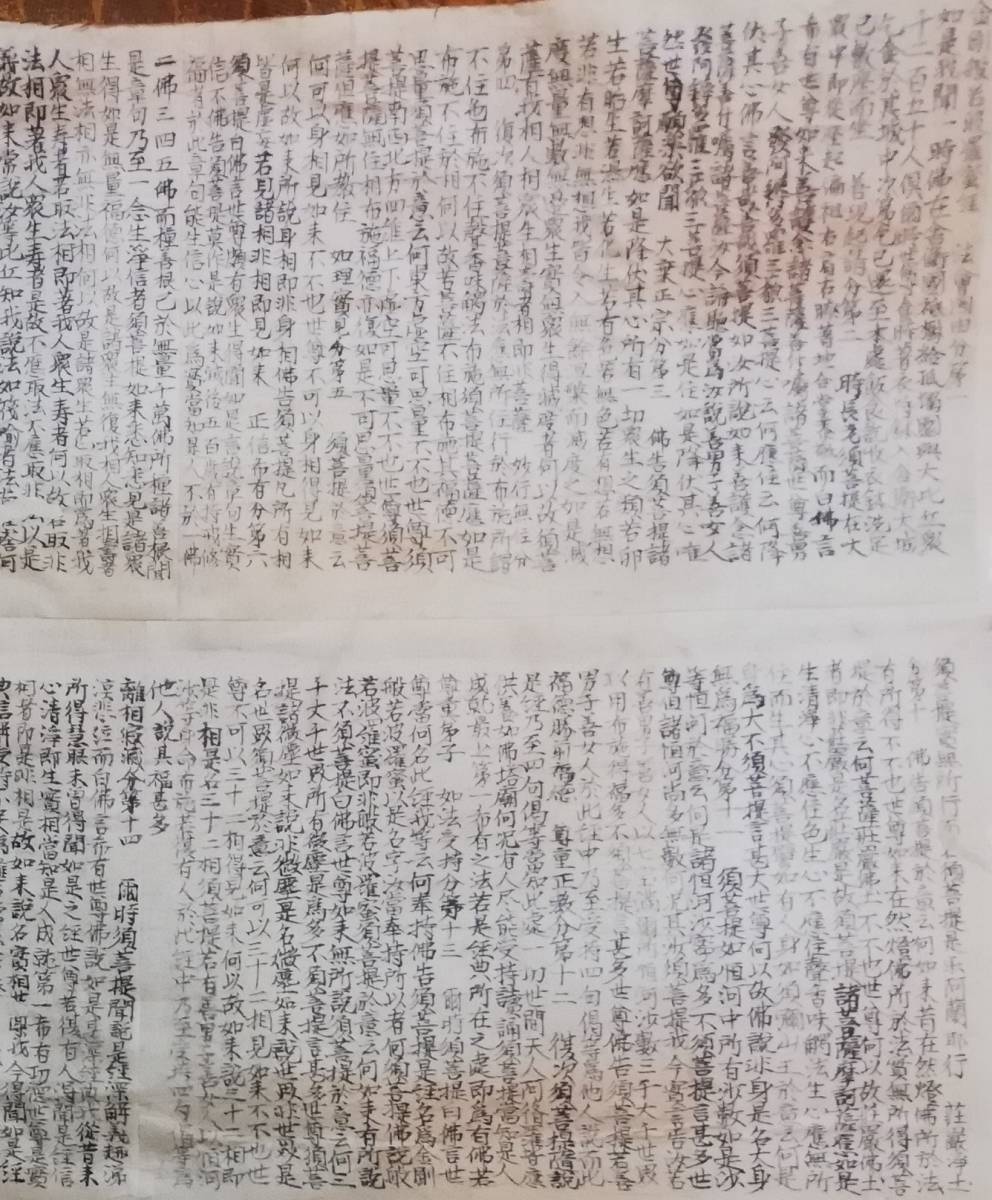 金剛般若波羅蜜經 法會因由分第一
如是我聞一時佛在舍衛國祇樹給孤獨園與大比丘眾
千二百五十人俱爾時世尊食時著衣持鉢入舍衛大城
乞食於其城中次第乞已還至本處飯食訖收衣鉢洗足
已敷座而坐 善現起請分第二 時長老須菩提在大
眾中即從座起偏袒右肩右膝著地合掌恭敬而白佛言
希有世尊如來善護念諸菩薩善付囑諸菩薩世尊善男
子善女人發阿耨多羅三藐三菩提心云何應住云何降
伏其心佛言善哉善哉須菩提如汝所說如來善護念諸
菩薩善付囑諸菩薩汝今諦聽當為汝說善男子善女人
發阿耨多羅三藐三菩提心應如是住如是降伏其心唯
然世尊願樂欲聞 大乘正宗分第三 佛告須菩提諸
菩薩摩訶薩應如是降伏其心所有一切眾生之類若卵
生若胎生若濕生若化生若有色若無色若有想若無想
若非有想非無想我皆令入無餘涅槃而滅度之如是滅
度無量無數無邊眾生實無眾生得滅度者何以故須菩
薩有我相人相眾生相壽者相即非菩薩 妙行無住分
第四 復次須菩提菩薩於法應無所住行於布施所謂
不住色布施不住聲香味觸法布施須菩提菩薩應如是
布施不住於相何以故若菩薩不住相布施其福德不可
思量須菩提於意云何東方虛空可思量不不也世尊須
菩提南西北方四維上下虛空可思量不不也世尊須菩
提菩薩無住相布施福德亦復如是不可思量須菩提菩
薩但應如所教住 如理實見分第五 須菩提於意云
何可以身相見如來不不也世尊不可以身相得見如來
何以故如來所說身相即非身相佛告須菩提凡所有相
皆是虛妄若見諸相非相即見如來 正信希有分第六
須菩提白佛言世尊頗有眾生得聞如是言說章句生實
信不佛告須菩提莫作是說如來滅後後五百歲有持戒修
福者於此章句能生信心以此為實當知是人不於一佛
二佛三四五佛而種善根已於無量千萬佛所種諸善根聞
是章句乃至一念生淨信者須菩提如來悉知悉見是諸眾
生得如是無量福德何以故是諸眾生無復我相人相眾生相壽者
相無法相亦無非法相何以故是諸眾生若心取相即為著我
人眾生壽者若取法相即著我人眾生壽者何以故若取非
法相即著我人眾生壽者是故不應取法不應取非法以是
義故如來常說汝等比丘知我說法如筏喻者法尚
須菩提實無所行而名須菩提是樂阿蘭那行 莊嚴淨土
分第十 佛告須菩提於意云何如來昔在然燈佛所於法
有所得不不也世尊如來在然燈佛所於法實無所得須菩
提於意云何菩薩莊嚴佛土不不也世尊何以故莊嚴佛土
者即非莊嚴是名莊嚴是故須菩提諸菩薩摩訶薩應如是
生清淨心不應住色生心不應住聲香味觸法生心應無所
住而生其心須菩提譬如有人身如須彌山王於意云何是
身為大不須菩提言甚大世尊何以故佛說非身是名大身
無為福勝分第十一 須菩提如恒河中所有沙數如是沙
等恒河於意云何是諸恒河沙寧為多不須菩提言甚多世
尊但諸恒河尚多無數何況其沙須菩提我今實言告汝若
有善男子善女人以七寶滿爾所恒河沙數三千大千世界
以用布施得福多不須菩提言甚多世尊佛告須菩提若善
男子善女人於此經中乃至受持四句偈等為他人說而此
福德勝前福德 尊重正教分第十二 復次須菩提隨說
是經乃至四句偈等當知此處一切世間天人阿修羅皆應
供養如佛塔廟何況有人盡能受持讀誦須菩提當知是人
成就最上第一希有之法若是經典所在之處即為有佛若
尊重弟子 如法受持分第十三 爾時須菩提白佛言世
尊當何名此經我等云何奉持佛告須菩提是經名為金剛
般若波羅蜜以是名字汝當奉持所以者何須菩提佛說般
若波羅蜜即非般若波羅蜜須菩提於意云何如來有所說
法不須菩提白佛言世尊如來無所說須菩提於意云何三
千大千世界所有微塵是為多不須菩提言甚多世尊須菩
提諸微塵如來說非微塵是名微塵如來說世界非世界是
名世界須菩提於意云何可以三十二相見如來不不也世
尊不可以三十二相得見如來何以故如來說三十二相即
是非相是名三十二相須菩提若有善男子善女人以恒河
沙等身命布施若復有人於此經中乃至受持四句偈等為
他人說其福甚多
離相寂滅分第十四 爾時須菩提聞說是經深解義趣涕
淚悲泣而白佛言希有世尊佛說如是甚深經典我從昔來
所得慧眼未曾得聞如是之經世尊若復有人得聞是經信
心清淨即生實相當知是人成就第一希有功德世尊是實
相者即是非相是故如來說名實相世尊我今得聞如是經
典信解受持